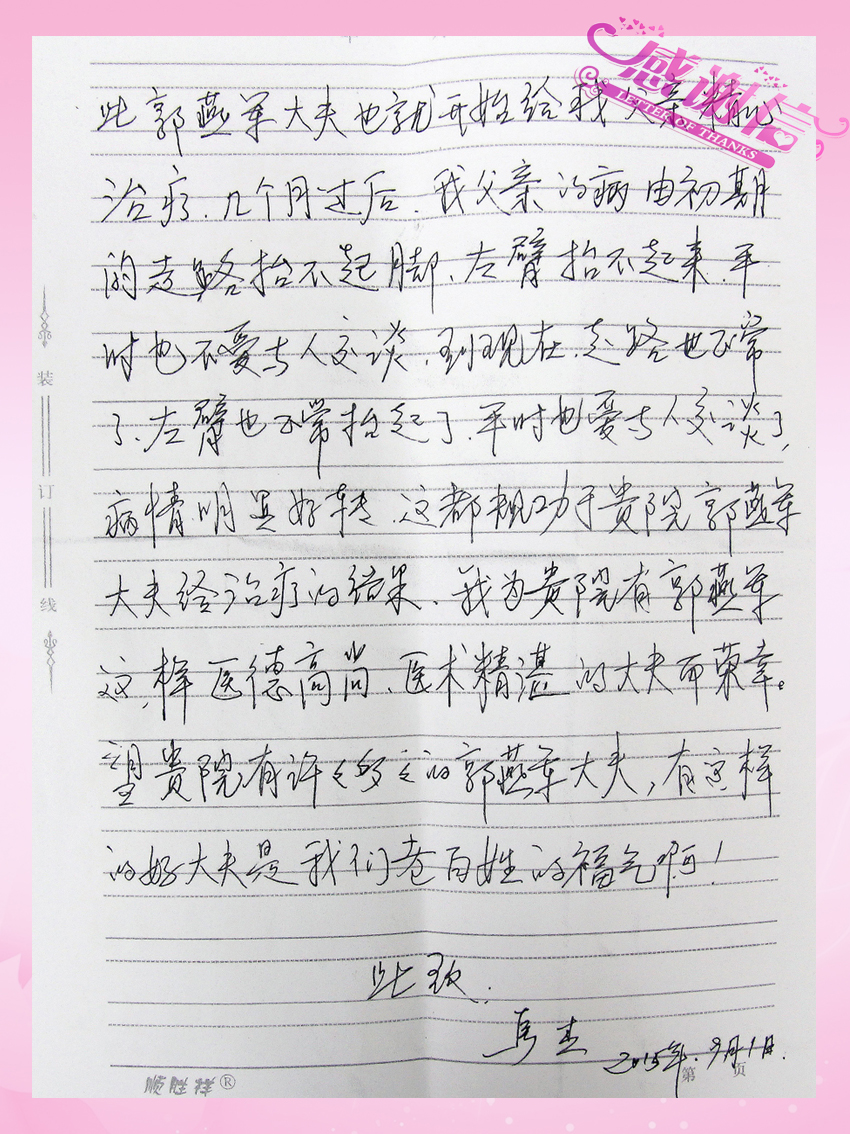 感谢信
LETTER OF THANKS
此郭燕军大夫也就开始给我父亲精心
治疗.几个月过后.我父亲的病由初期
的走路抬不起脚、左臂抬不起来.平
时也不爱与人交谈.到现在.走路也正常
了.左臂也正常抬起了.平时也爱与人交谈了,
病情明显好转.这都归功于贵院郭燕军
大夫经治疗的结果、我为贵院有郭燕军
这样医德高尚、医术精湛的大夫而荣幸。
望贵院有许许多多的郭燕军大夫,有这样
的好大夫是我们老百姓的福气啊!
此致.
马杰
2015年.9月1日.
第 页
装
订
线
顺胜祥®